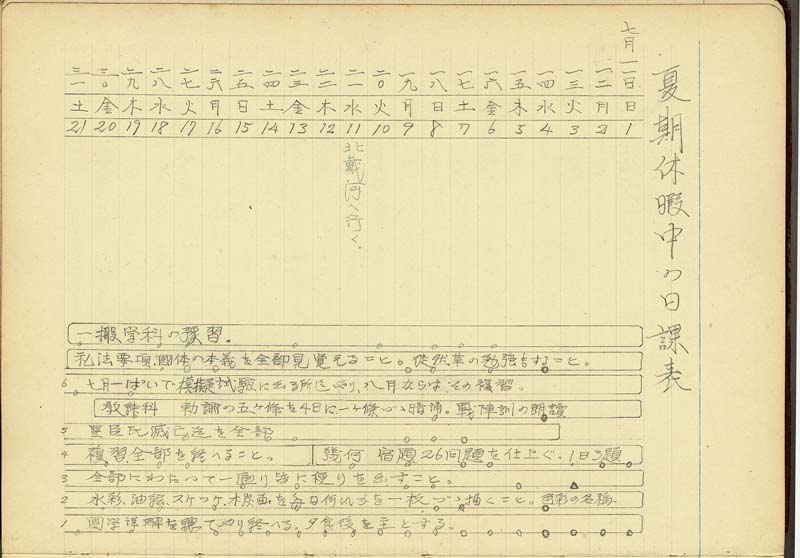 夏期休暇中の日課表
七月
一一 日 1
一二 月 2
一三 火 3
一四 水 4
一五 木 5
一六 金 6
一七 土 7
一八 日 8
一九 月 9
二〇 火 10
二一 水 11 北戴河へ行く。
二二 木 12
二三 金 13
二四 土 14
二五 日 15
二六 月 16
二七 火 17
二八 水 18
二九 木 19
三〇 金 20
三一 土 21
一搬学科の豫習。
礼法要項、國体の本義を全部見覚えること。徒然草の勉強もすること。
6. 七月一ぱいで模擬試験に出る所をやり、八月からは、その複習。
教練科 勅諭の五ヶ條を4日に一ヶ條づつ暗誦。戰陣訓の朗讀
5 豊臣氏滅亡迄を全部
4 複習全部を終へること。 幾何 宿題26問題を仕上ぐ、1日3題
3 全部にわたつて一通り皆に便りを出すこと。
2 水彩、油絵、スケッチ、木炭画を毎日何れかを一枚づつ描くこと。色彩の名稱
1. 画学詳解を やり終へる。夕食後を主とする。